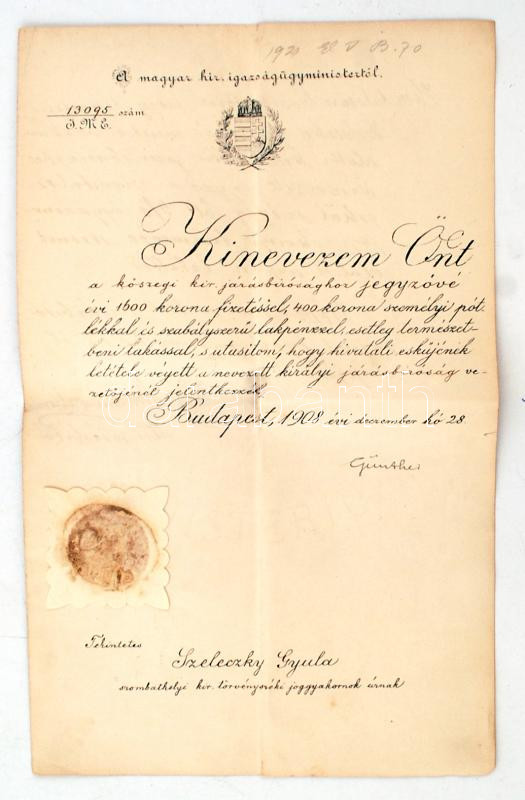 1920 El V B. 70
A magyar kir. igazságügyministertől.
13095 szám
I. M. E.
Kinevezem Önt
a kőszegi kir. járásbírósághoz jegyzővé
évi 1600 korona fizetéssel, 400 korona személyi pót-
lékkal és szabályszerű lakpénzzel, esetleg természet-
beni lakással, s utasítom, hogy hivatali esküjének
letétele végett a nevezett királyi járásbíróság ve-
zetőjénél jelentkezzék.
Budapest, 1908 évi deczember hó 28.
Günther
Tekintetes
Szeleczky Gyula
szombathelyi kir. törvényszéki joggyakornok úrnak